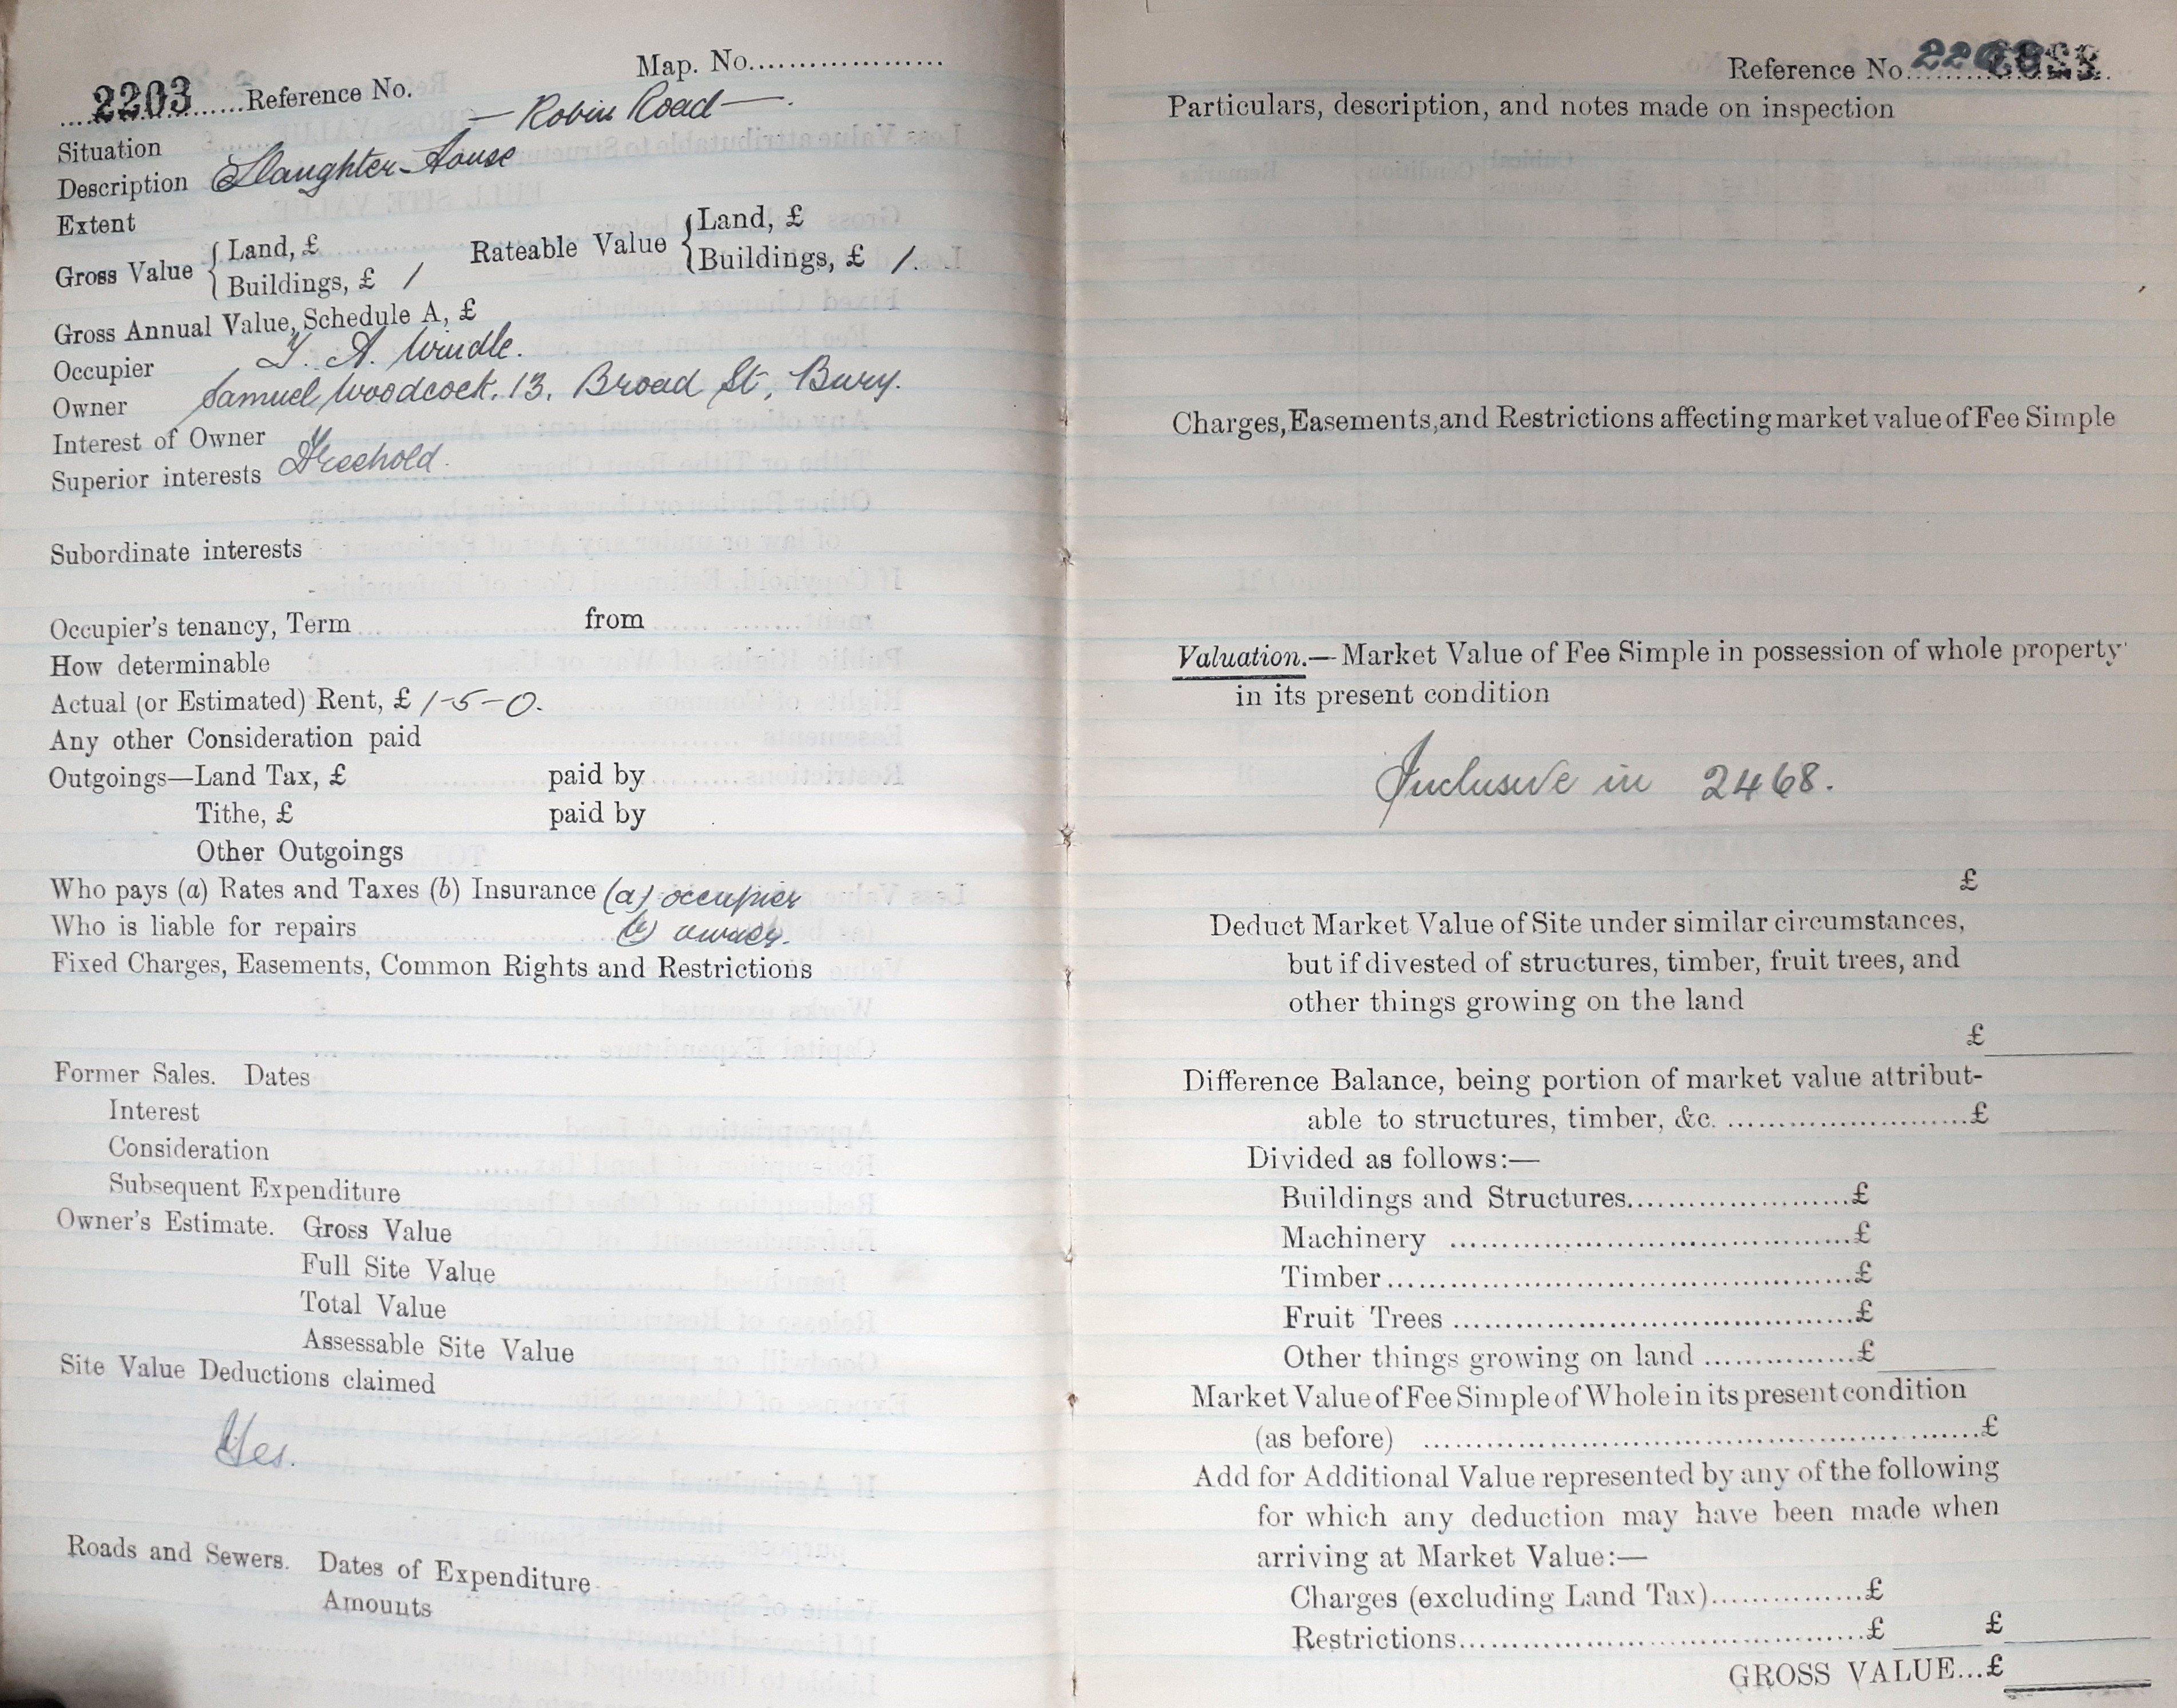 Map. No....................
2203 ......Reference No.
— Robin Road —.
Situation
Description Slaughter-House
Extent
Gross Value { Land, £
Buildings, £ 1
Rateable Value { Land, £
Buildings, £ 1.
Gross Annual Value, Schedule A, £
Occupier A. Wrudle.
Owner Samuel Woodcock. 13, Broad St, Bury.
Interest of Owner
Superior interests Freehold.
Subordinate interests
Occupier's tenancy, Term from
How determinable
Actual (or Estimated) Rent, £ 1-5-0.
Any other Consideration paid
Outgoings—Land Tax, £ paid by
Tithe, £ paid by
Other Outgoings
Who pays (a) Rates and Taxes (b) Insurance (a) occupier
Who is liable for repairs (b) owner.
Fixed Charges, Easements, Common Rights and Restrictions
Former Sales. Dates
Interest
Consideration
Subsequent Expenditure
Owner's Estimate. Gross Value
Full Site Value
Total Value
Assessable Site Value
Site Value Deductions claimed
Yes.
Roads and Sewers. Dates of Expenditure
Amounts
Reference No.
Particulars, description, and notes made on inspection
Charges, Easements, and Restrictions affecting market value of Fee Simple
Valuation.—Market Value of Fee Simple in possession of whole property
in its present condition
Inclusive in 2468.
£
Deduct Market Value of Site under similar circumstances,
but if divested of structures, timber, fruit trees, and
other things growing on the land
£
Difference Balance, being portion of market value attribut-
able to structures, timber, &c. ........................£
Divided as follows:—
Buildings and Structures......................£
Machinery ........................................£
Timber..............................................£
Fruit Trees ........................................£
Other things growing on land ...............£
Market Value of Fee Simple of Whole in its present condition
(as before) ........................................................£
Add for Additional Value represented by any of the following
for which any deduction may have been made when
arriving at Market Value:—
Charges (excluding Land Tax)...............£
Restrictions..........................................£ £
GROSS VALUE...£